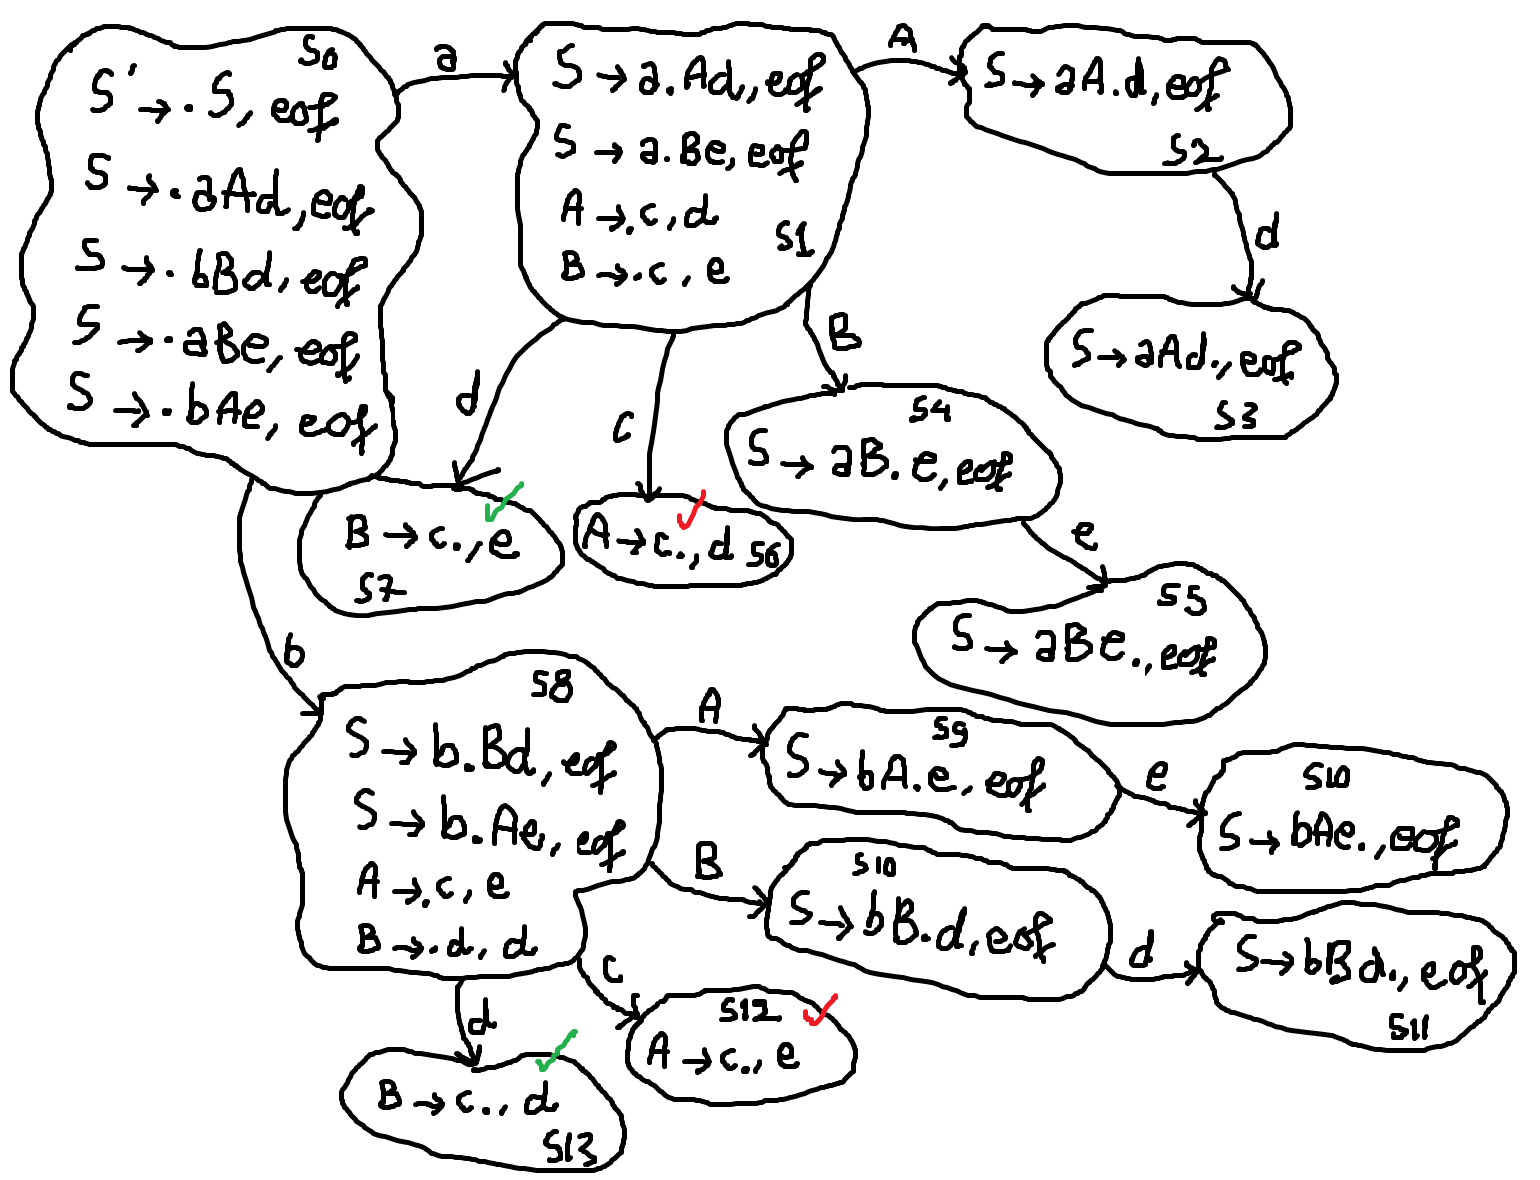 S0
S' → . S, eof
S → . aAd, eof
S → . bBd, eof
S → . aBe, eof
S → . bAe, eof
a
S → a.Ad, eof
S → a.Be, eof
A → .c, d
B → .c, e
S1
A
S → aA.d, eof
S2
d
S → aAd., eof
S3
B
S4
S → aB.e, eof
e
S5
S → aBe., eof
d
B → c., e
S7
c
A → c., d S6
b
S8
S → b.Bd, eof
S → b.Ae, eof
A → .c, e
B → .d, d
A
S9
S → bA.e, eof
e
S10
S → bAe., eof
B
S10
S → bB.d, eof
d
S → bBd., eof
S11
c
S12
A → c., e
d
B → c., d
S13